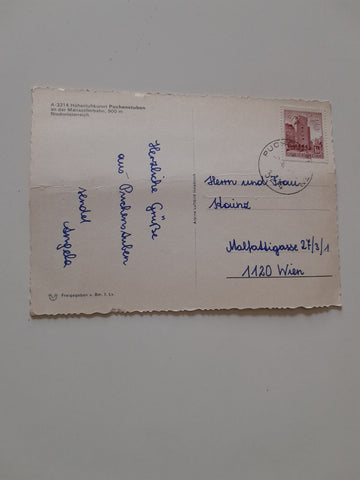 A-3214 Höhenluftkurort Puchenstuben
an der Mariazellerbahn, 900 m
Niederösterreich
Herzliche Grüße
aus Puchenstuben
sendet
Angela
Herrn und Frau
Stainz
Malfattigasse 27/3/1
1120 Wien
Freigegeben v. Bm. f. Lv.
PUCH